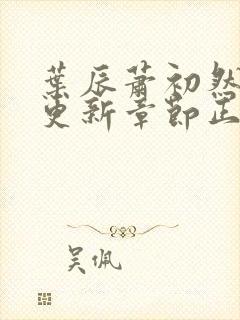 葉辰蕭初然
更新章節正
吴佩